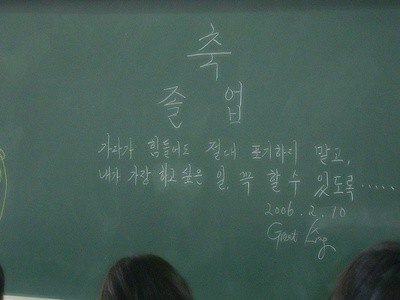 축
졸 업
가다가 힘들어도 절대 포기하지 말고,
내가 가장 하고 싶은 일. 꼭 할 수 있도록.....
2006. 2. 10
Great King